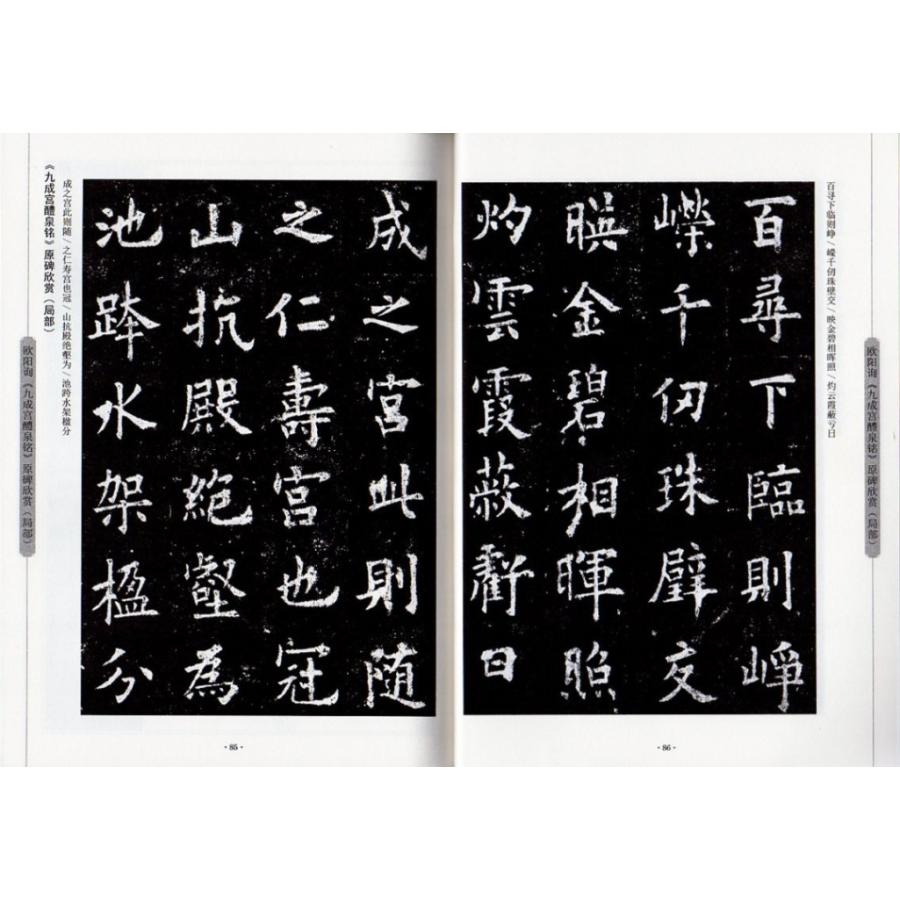 《九成宫醴泉铭》原碑欣赏（局部）
成之宫此则随/之仁寿宫也冠/山抗殿绝壑为/池跨水架楹分
欧阳询《九成宫醴泉铭》原碑欣赏（局部）
成之宮此則随
之仁壽宮也冠
山抗殿絶壑為
池跨水架楹分
- 85 -
百寻下临则峥/嵘千仞珠壁交/映金碧相晖照/灼云霞蔽亏日
欧阳询《九成宫醴泉铭》原碑欣赏（局部）
百尋下臨則崢
嶸千仞珠壁交
暎金碧相暉照
灼雲霞蔽虧日
- 86 -